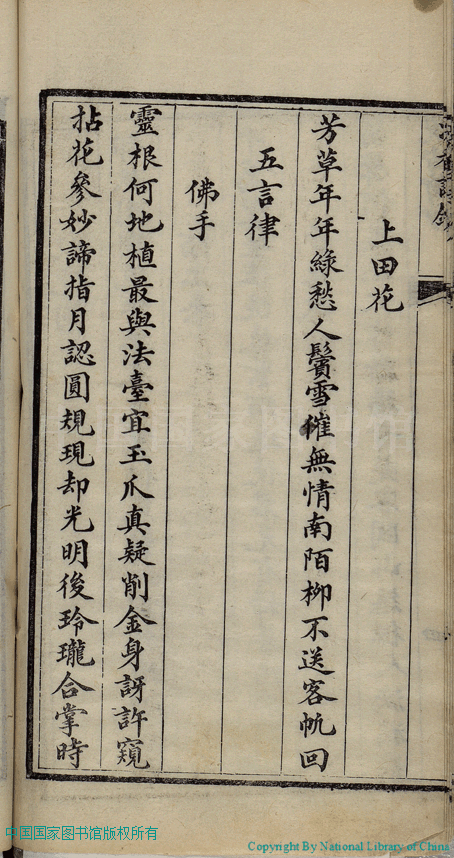 上田花
芳草年年綠愁人鬢雪催無情南陌柳不送客帆回
五言律
佛手
靈根何地植最與法臺宜玉爪真疑削金身訝許窺
拈花參妙諦指月認圓規現却光明後玲瓏合掌時
中国国家图书馆版权所有
Copyright By National Library of China